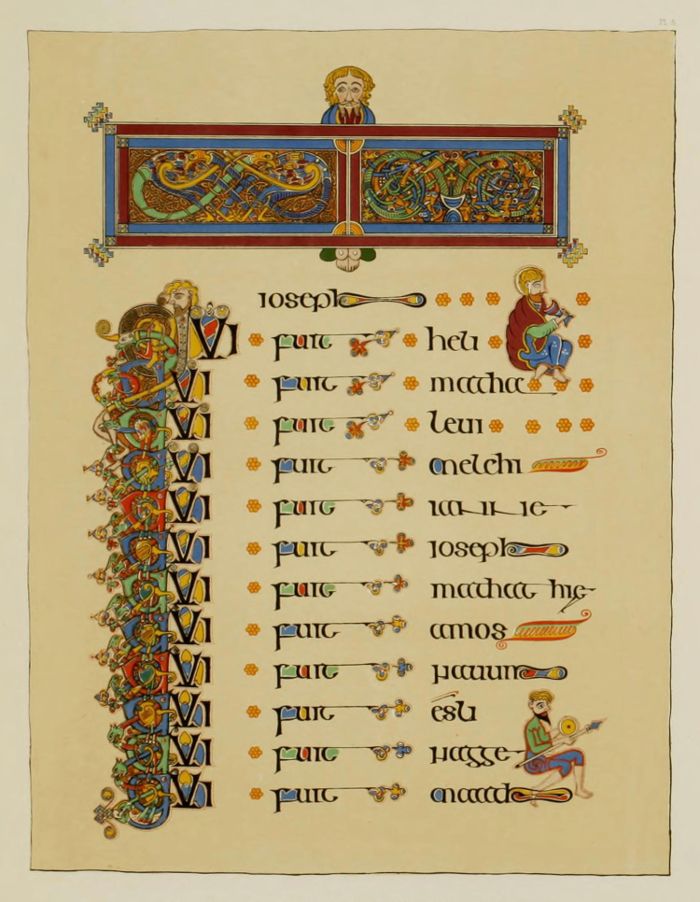 ioseph
QVI fuit heli
QVI fuit matha
QVI fuit leui
QVI fuit melchi
QVI fuit
QVI fuit ioseph
QVI fuit mathathie
QVI fuit amos
QVI fuit nauum
QVI fuit esli
QVI fuit nagge
QVI fuit maath